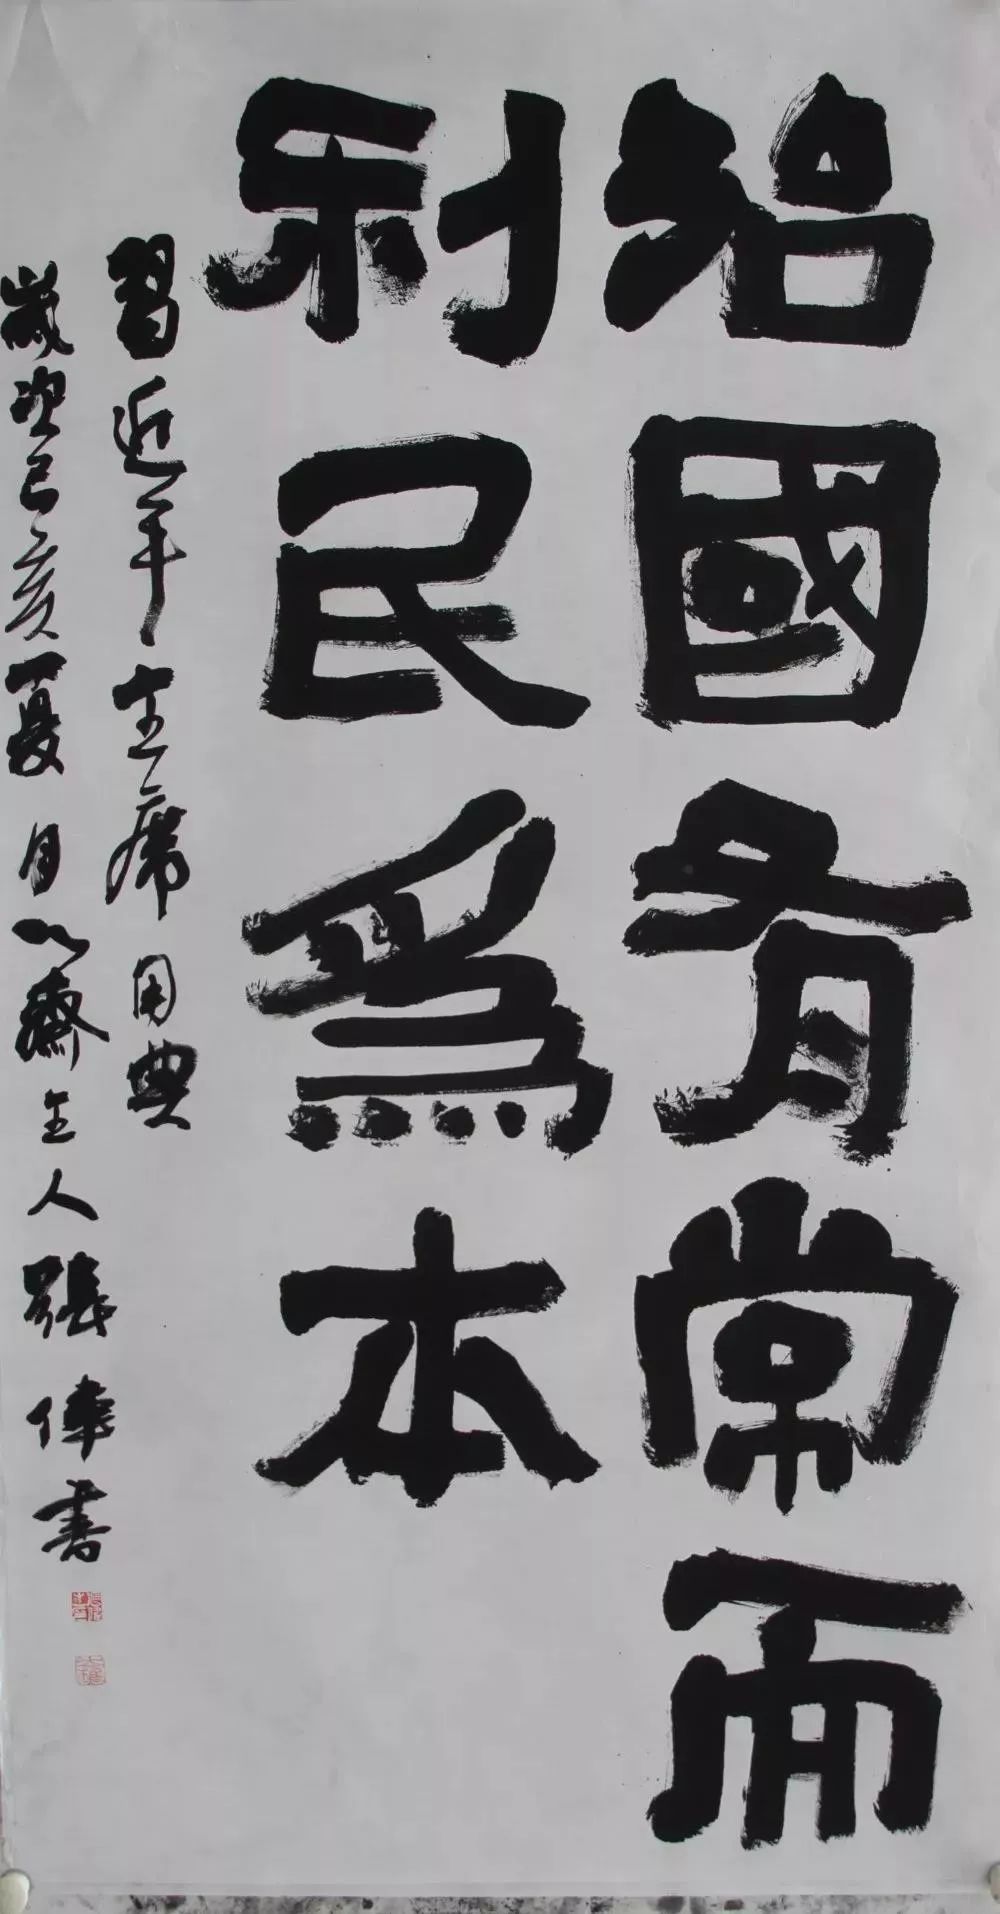 治國有常而
利民爲本
習近平主席用典
歲次己亥夏月心齋主人張偉書